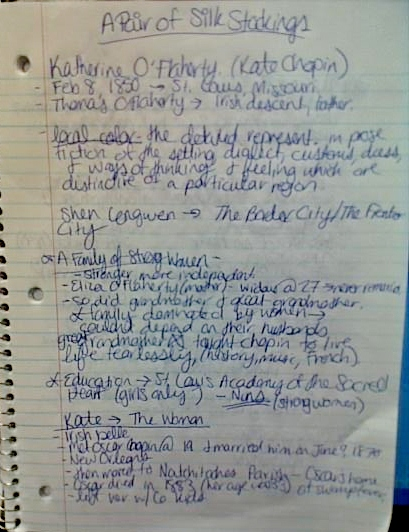 A Pair of Silk Stockings
Katherine O'Flaherty (Kate Chopin)
- Feb 8, 1850 → St. Louis, Missouri
- Thomas O'Flaherty → Irish descent, father.
- local color - the detailed represent. in prose
fiction of the setting, dialect, customs, dress,
& ways of thinking & feeling which are
distinctive of a particular region.
Shen Congwen → The Border City/The Frontier
City
A Family of Strong Women -
- stronger, more independent
- Eliza O'Flaherty (mother) - widow @ 27 → never remarried
- so did grandmother & great grandmother.
family dominated by women →
couldn't depend on their husbands
great grandmother taught Chopin to live
life fearlessly, (history, music, French)
Education → St. Louis Academy of the Sacred
Heart (girls only) - Nuns (strong women)
Kate → The Woman
- Irish belle
- Met Oscar Chopin @ 19 & married him on June 9, 1870
- New Orleans
- then moved to Natchitoches Parish - (Oscar's home
- Oscar died in 1883 of swamp fever
- left her w/